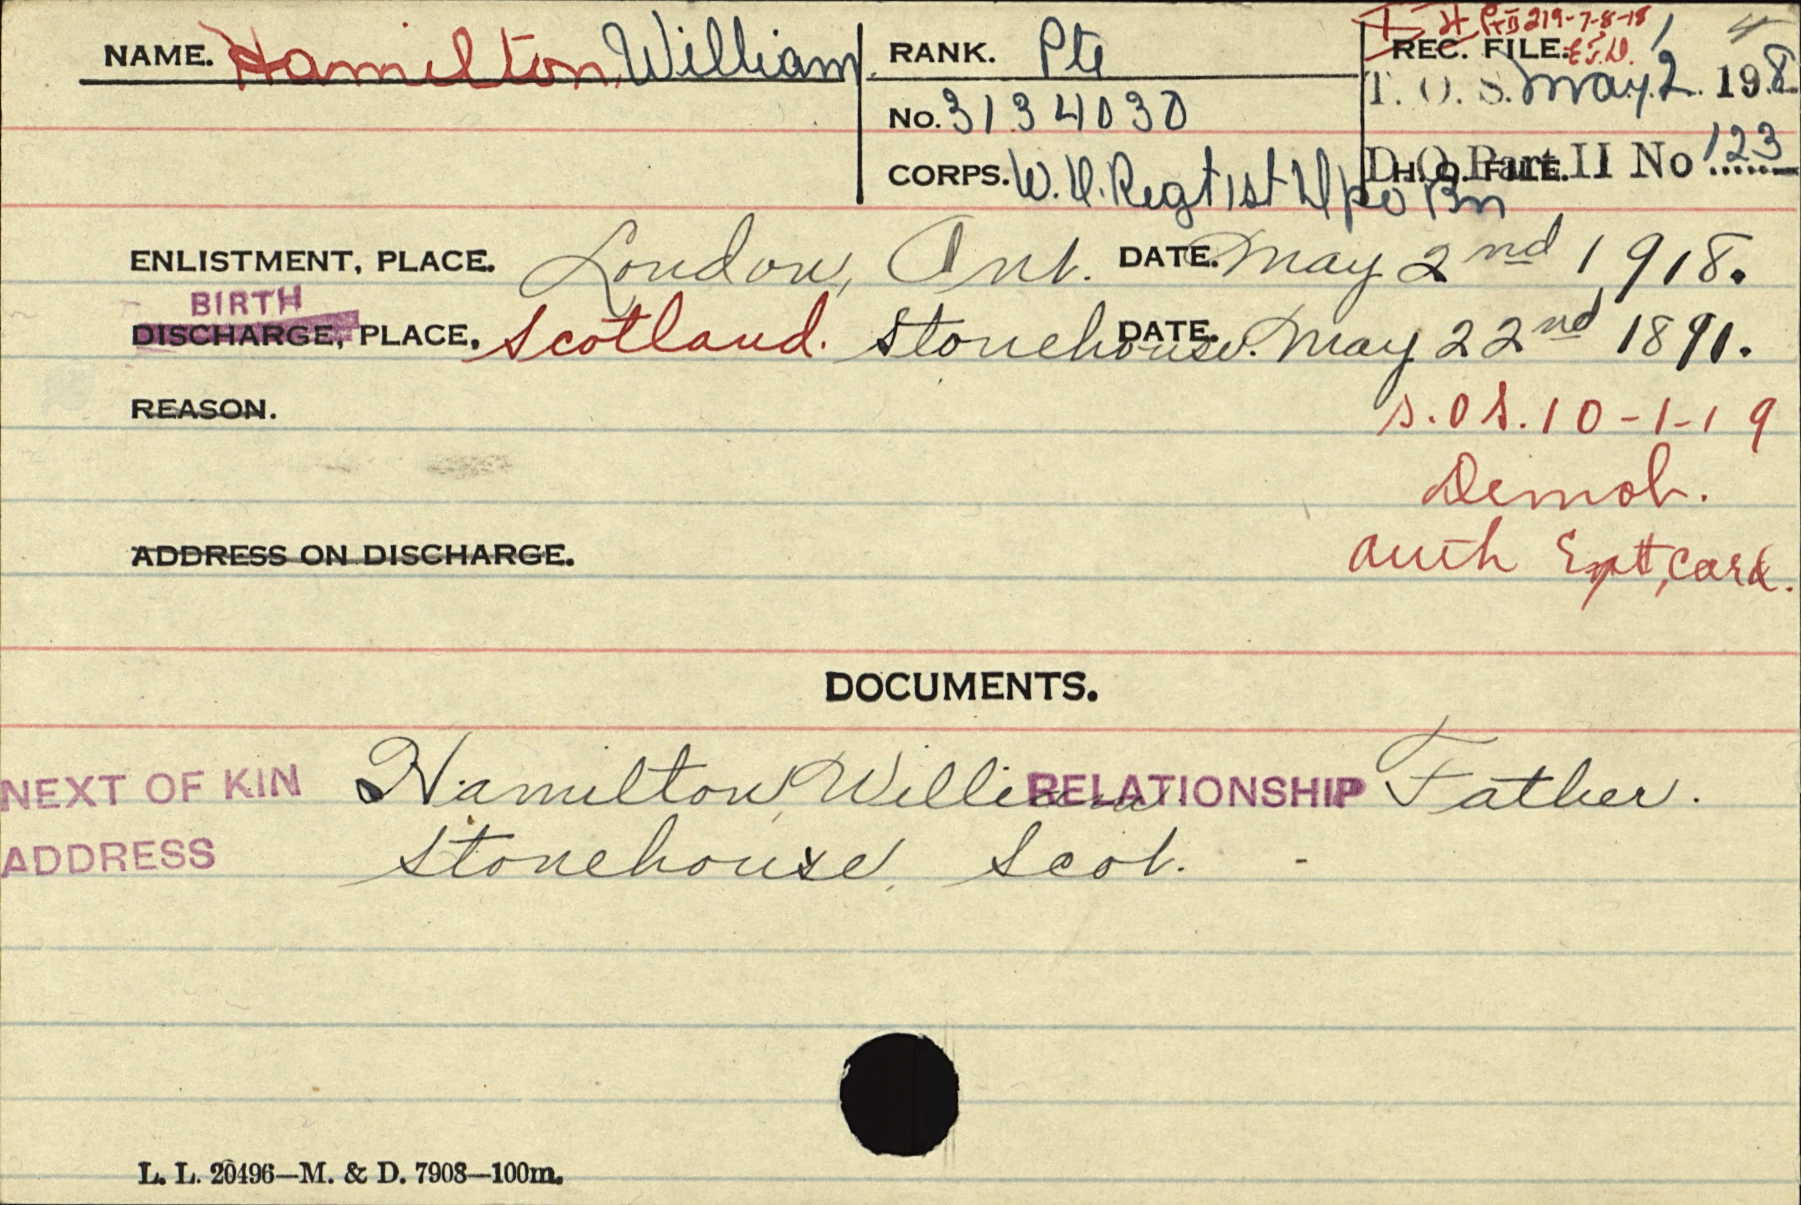 NAME. Hamilton, William RANK. Pte REC. FILE. Pt II 219-7-8-18
T. O. S. May. 2. 1918
No. 3134030
D.O. Part II No 123
CORPS. W.O. Regt 1st Dpo Bn H.Q. FILE.
ENLISTMENT, PLACE. London, Ont. DATE. May 2nd 1918.
BIRTH
DISCHARGE, PLACE, Scotland. Stonehouse. DATE. May 22nd 1891.
REASON. S.O.S. 10-1-19
Demob.
ADDRESS ON DISCHARGE. auth Eptt, Card.
DOCUMENTS.
NEXT OF KIN Hamilton, William. RELATIONSHIP Father.
ADDRESS Stonehouse, Scot. -
L. L. 20496—M. & D. 7908—100m.